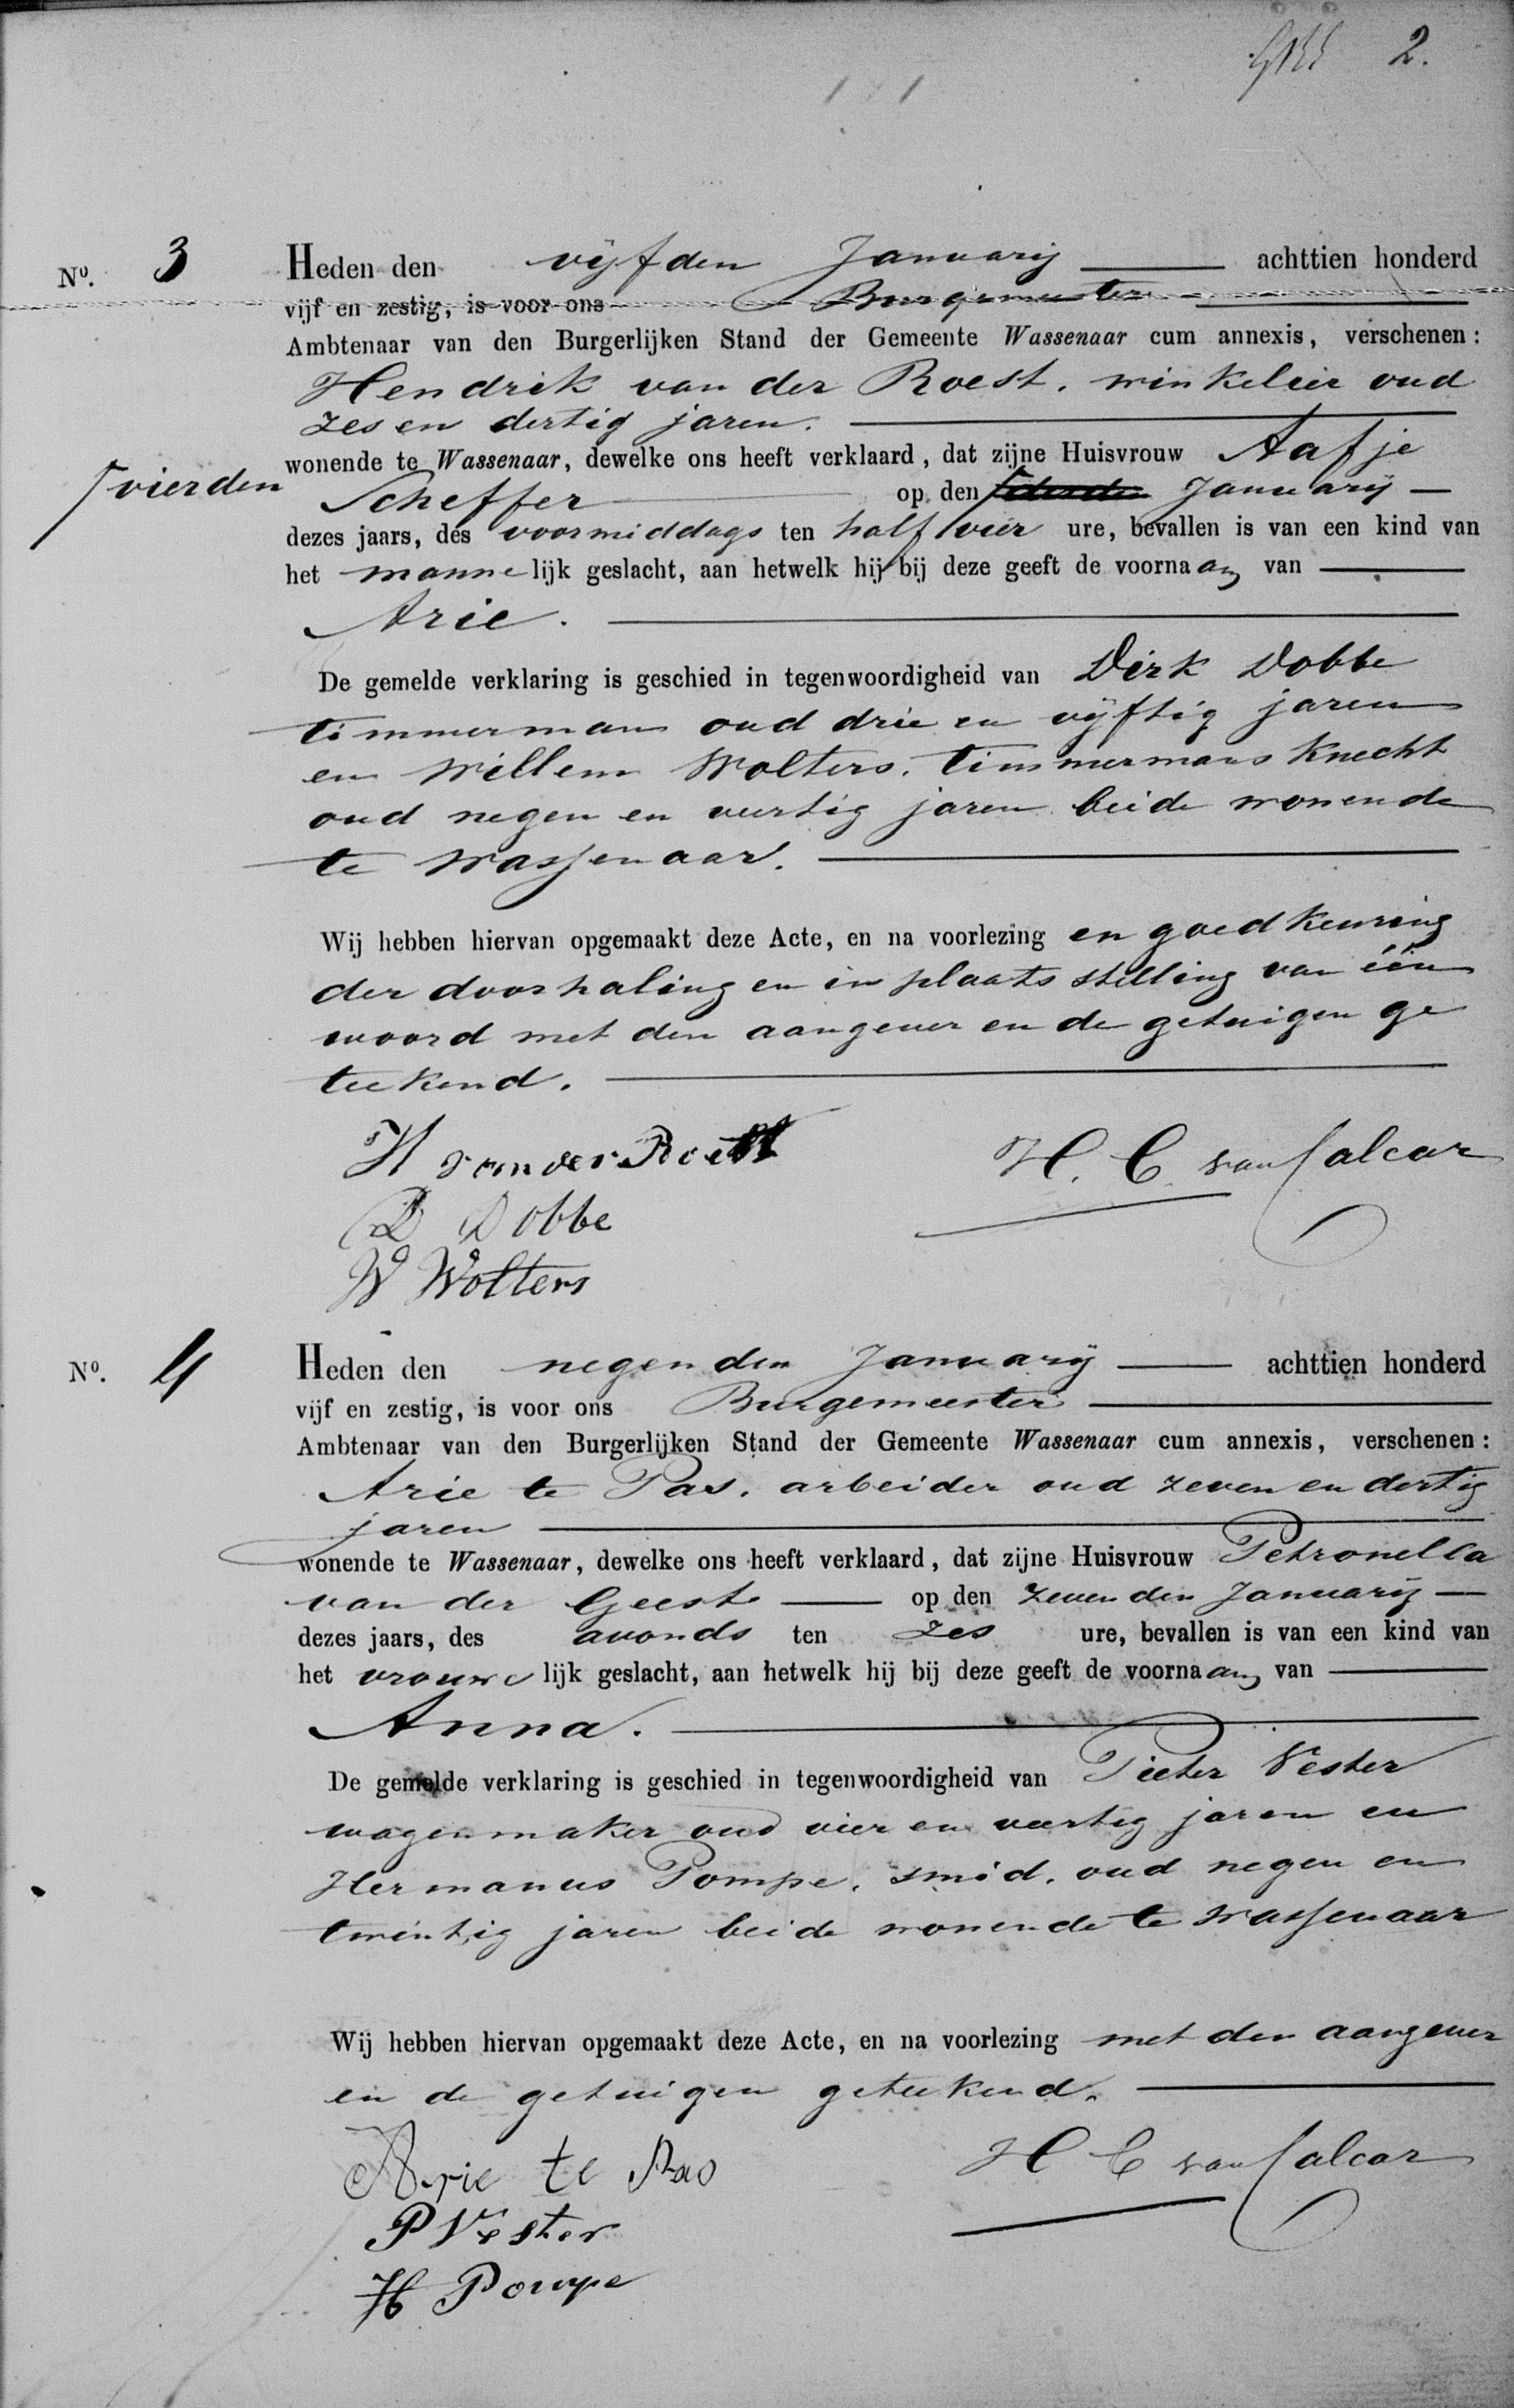 2.
Nº. 3 Heden den vijfden Januarij achttien honderd
vijf en zestig, is voor ons Burgemeester
Ambtenaar van den Burgerlijken Stand der Gemeente Wassenaar cum annexis, verschenen:
Hendrik van der Roest, winkelier oud
zes en dertig jaren.
wonende te Wassenaar, dewelke ons heeft verklaard, dat zijne Huisvrouw Aafje
vierden
Scheffer op den Januarij
dezes jaars, des voormiddags ten half vier ure, bevallen is van een kind van
het mannelijk geslacht, aan hetwelk hij bij deze geeft de voornaam van
Arie.
De gemelde verklaring is geschied in tegenwoordigheid van Dirk Dobbe
timmerman oud drie en vijftig jaren
en Willem Wolters, timmermans knecht
oud negen en veertig jaren beide wonende
te Wassenaar.
Wij hebben hiervan opgemaakt deze Acte, en na voorlezing en goedkeuring
der doorhaling en in plaats stelling van één
woord met den aangever en de getuigen ge
teekend.
H van der Roest
H. C. van Calcar
D Dobbe
W Wolters
Nº. 4 Heden den negenden Januarij achttien honderd
vijf en zestig, is voor ons Burgemeester
Ambtenaar van den Burgerlijken Stand der Gemeente Wassenaar cum annexis, verschenen:
Arie te Pas, arbeider oud zeven en dertig
jaren
wonende te Wassenaar, dewelke ons heeft verklaard, dat zijne Huisvrouw Petronella
van der Geest op den zevenden Januarij
dezes jaars, des avonds ten zes ure, bevallen is van een kind van
het vrouwelijk geslacht, aan hetwelk hij bij deze geeft de voornaam van
Anna.
De gemelde verklaring is geschied in tegenwoordigheid van Pieter Vester
wagenmaker oud vier en veertig jaren en
Hermanus Pompe, smid, oud negen en
twintig jaren beide wonende te Wassenaar
Wij hebben hiervan opgemaakt deze Acte, en na voorlezing met den aangever
en de getuigen geteekend.
Arie te Pas
H C van Calcar
P Vester
H Pompe